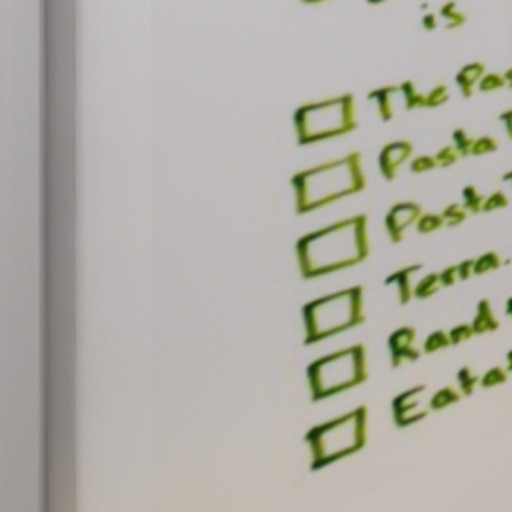 is
The Pas
Pasta
Pasta
Terra.
Rand
Eata